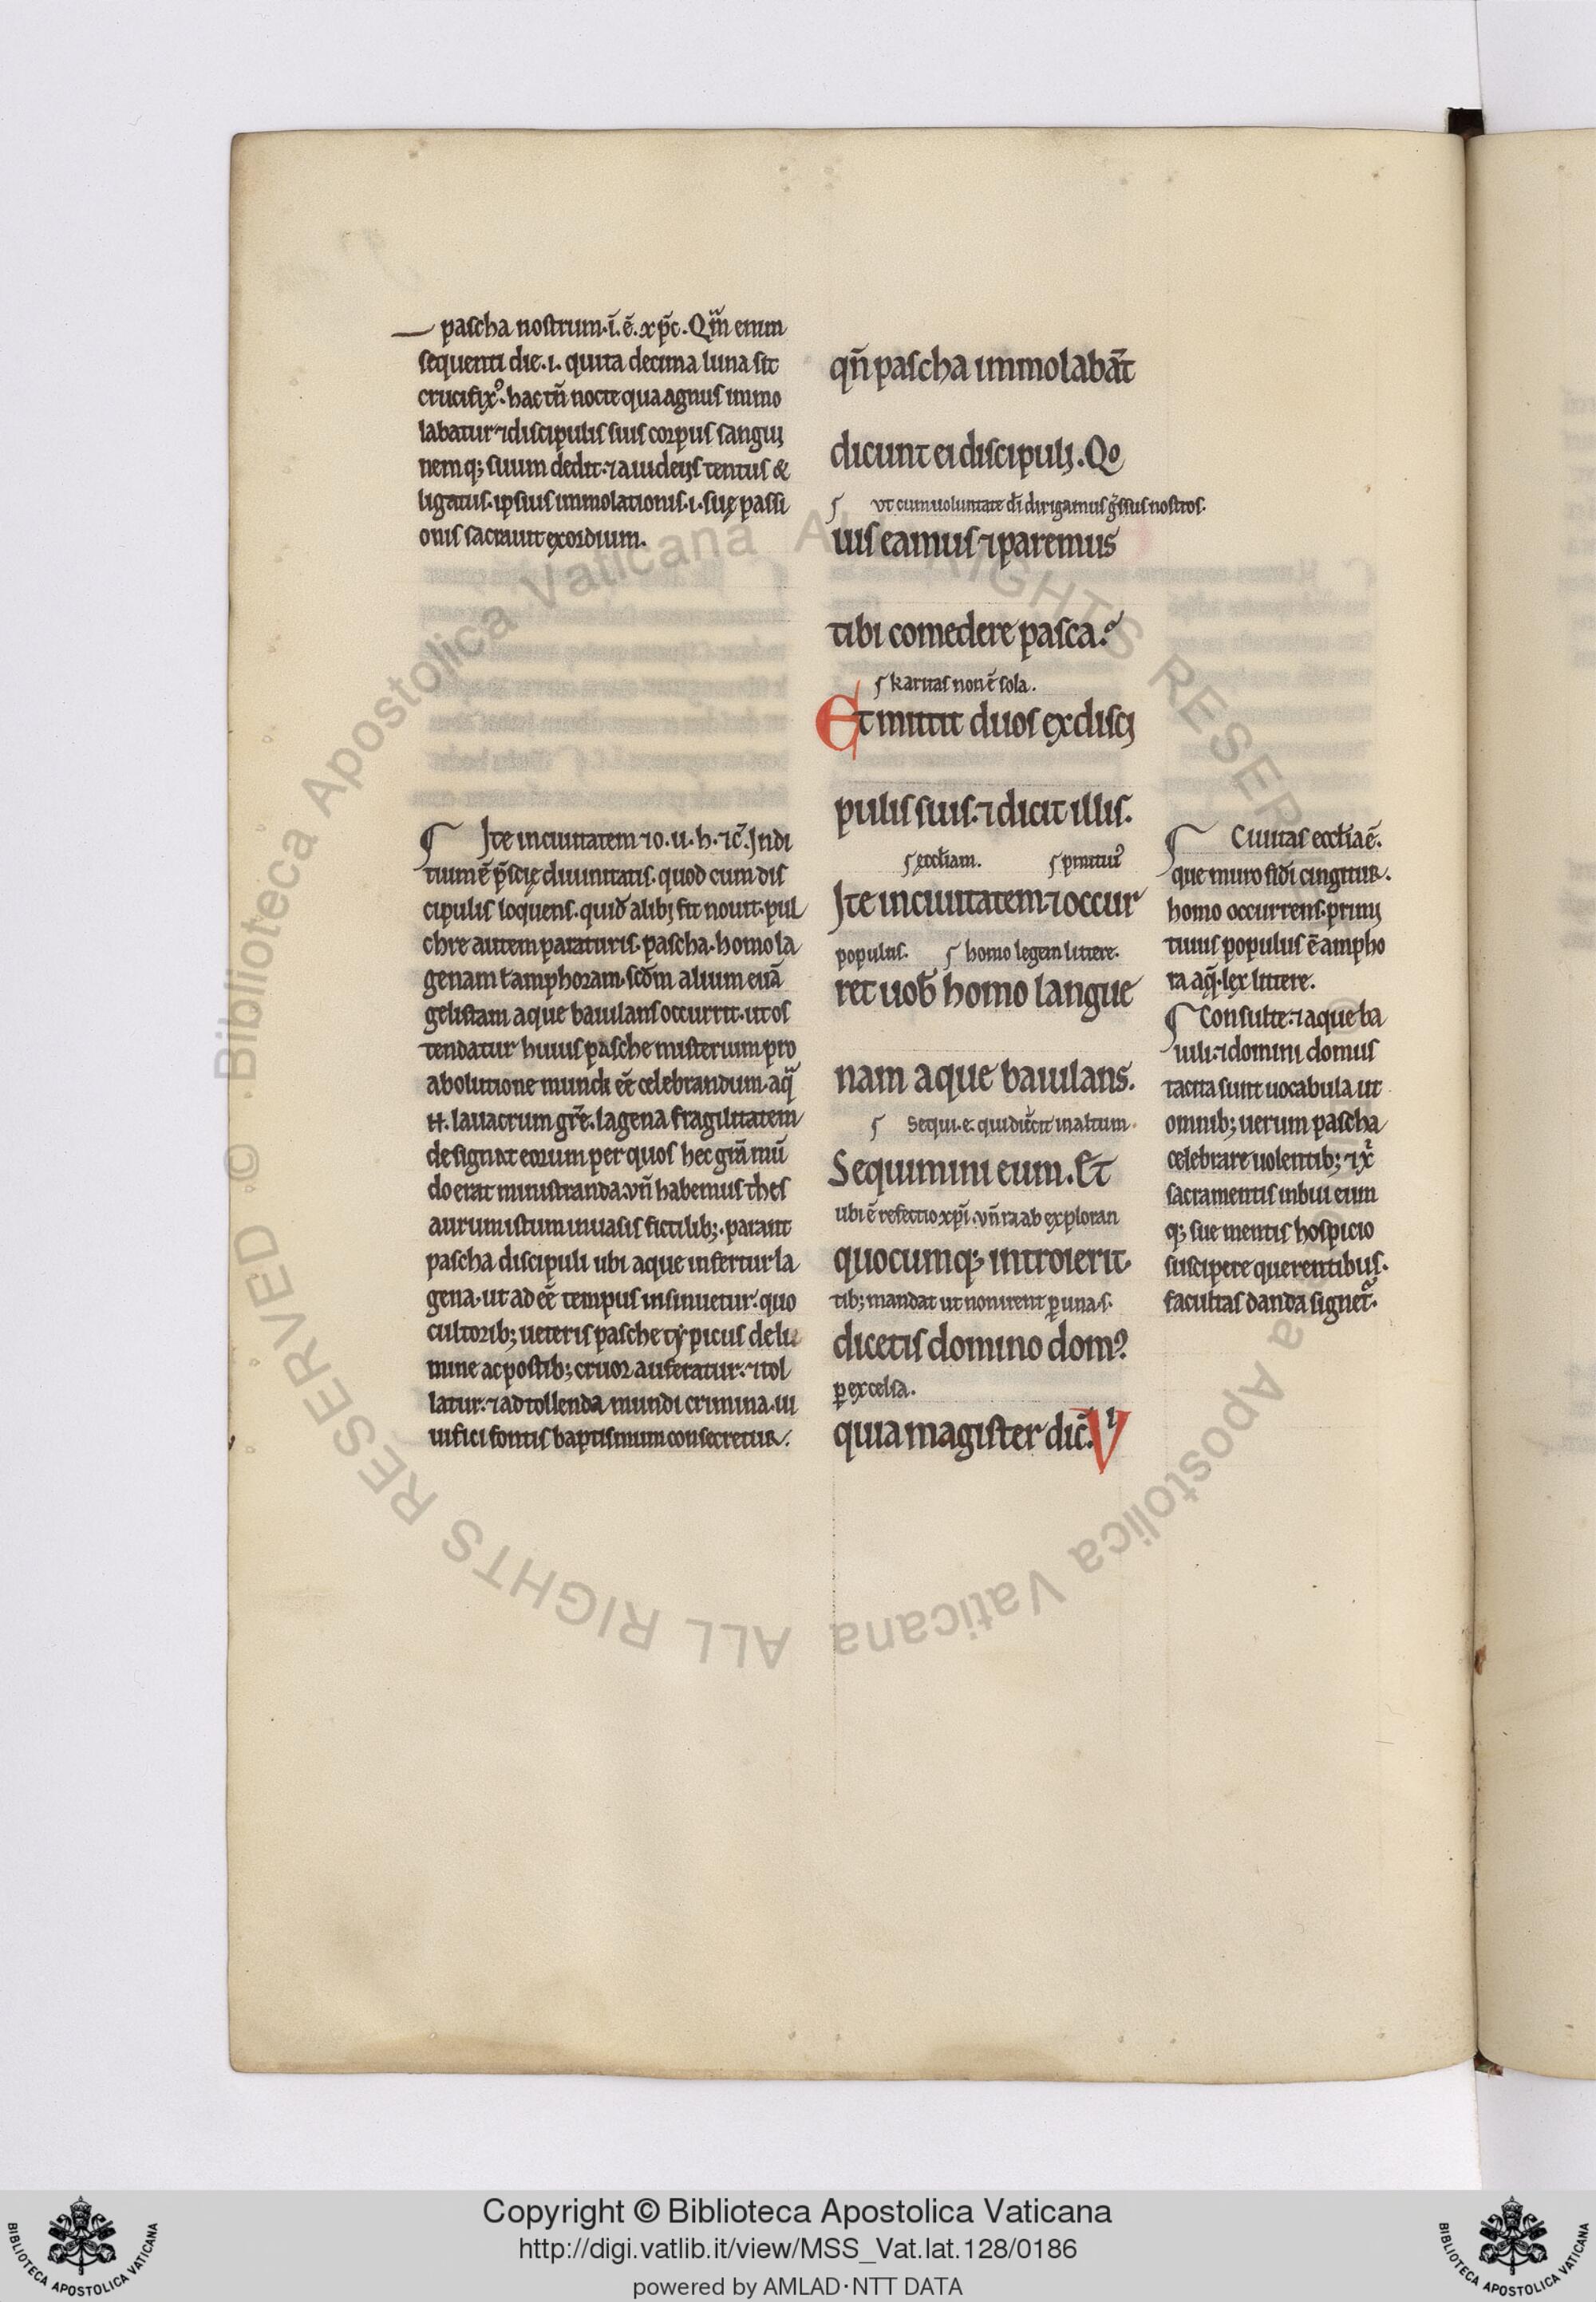 pascha nostrum.i.ē.xp̄c.Qm̄ enim
sequenti die.i. quīta decima luna sit
crucifixꝰ.hac tn̄ nocte qua agnus immo
labatur ⁊ discipulis suis corpus sangui
nemq; suum dedit.⁊ a iudeijs tentus &
ligatus.ipsius immolationis.i.suę passi
onis sacrauit exordium.
Ite in ciuitatem ⁊ o.u.h.⁊c̄.Indi
tium ē p̄scię diuinitatis.quod cum dis
cipulis loquens.quid alibi fit nouit.pul
chre autem paraturis.pascha.homo la
genam ł amphoram.scd̄m alium euā
gelistam aque baiulans occurrit.ut os
tendatur huius pasche misterium pro
abolutione mundi eē celebrandum.aq̄
H.lauacrum gr̄e.lagena fragilitatem
designat eorum per quos hec grā mū
do erat ministranda.vn̄ habemus thes
aurum istum in uasis fictilib;.parant
pascha discipuli ubi aque infertur la
gena.ut adeē tempus insinuetur.quo
cultorib; ueteris pasche typicus de li
mine ac postib; cruor auferatur.⁊ tol
latur.⁊ ad tollenda mundi crimina.ui
uifici fontis baptismum consecretur.
qn̄ pascha immolabāt
dicunt ei discipuli.Qo
vt cum uoluntate dī dirigamus gͣssus nostros.
uis eamus ⁊ paremus
tibi comedere pasca?
karitas non ē sola.
Et mittit duos ex disci
pulis suis.⁊ dicit illis.
ęccłiam. pmituꝰ
Ite in ciuitatem.⁊ occur
populus. homo legem littere.
ret uob̄ homo langue
nam aque baiulans.
Sequi.e. qui ducit in altum.
Sequimini eum.Et
ubi ē refectio xpī.vn̄ ra ab exploran
quocumq; introierit.
tib; mandat ut non irent ꝑ una.s.
dicetis domino domꝰ
ꝑ excelsa.
quia magister dic̄.Vi
Ciuitas eccłia ē.
que muro fidī cingitur.
homo occurrens.primi
tiuus populus ē ampho
ra aq̄.lex littere.
Consulte.⁊ aque ba
iuli.⁊ domini domus
tacita sunt uocabula ut
omnib; uerum pascha
celebrare uolentib; ⁊ x̄
sacramentis inbui eum
q; sue mentis hospicio
suscipere querentibus.
facultas danda signet᷑.
Copyright © Biblioteca Apostolica Vaticana
http://digi.vatlib.it/view/MSS_Vat.lat.128/0186
powered by AMLAD·NTT DATA